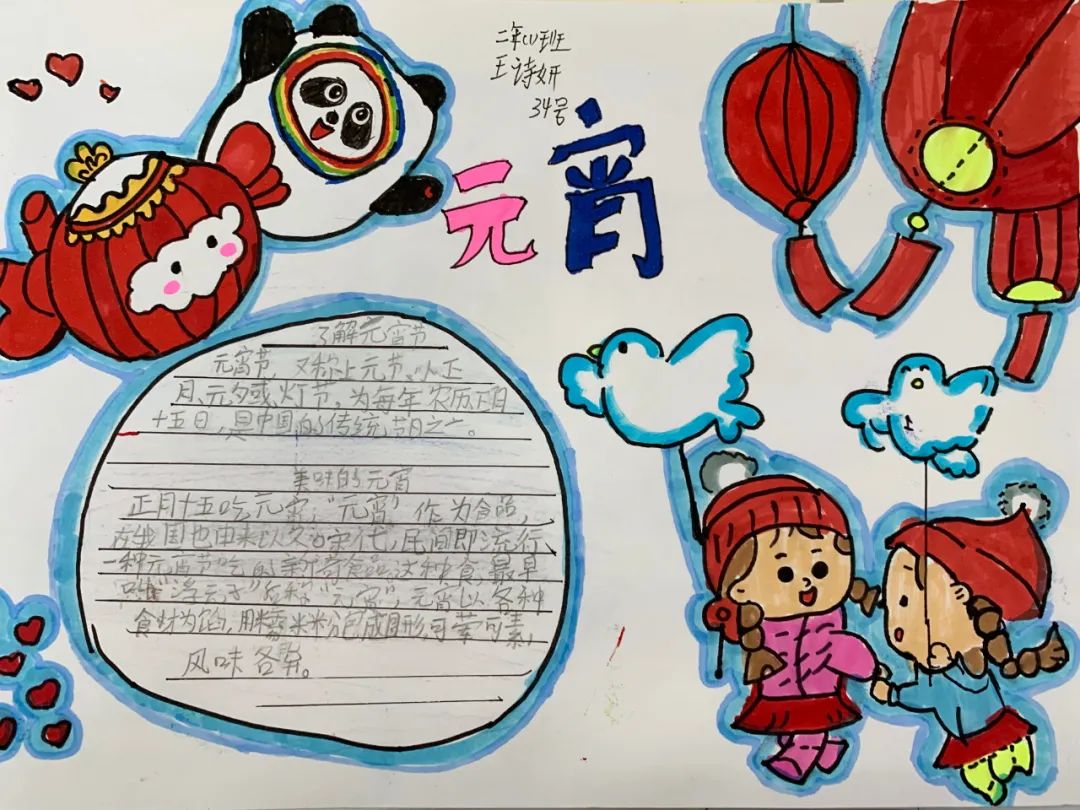 二年(1)班
王诗妍
34号
元宵
了解元宵节
元宵节，又称上元节、小正
月、元夕或灯节，为每年农历正月
十五日，是中国的传统节日之一。
美味的元宵
正月十五吃元宵，“元宵”作为食品，
在我国也由来以久，宋代，民间即流行
一种元宵节吃的新奇食品。这种食，最早
叫“浮元子”后称“元宵”，元宵以各种
食材为馅，用糯米粉包成圆形，可荤可素，
风味各异。